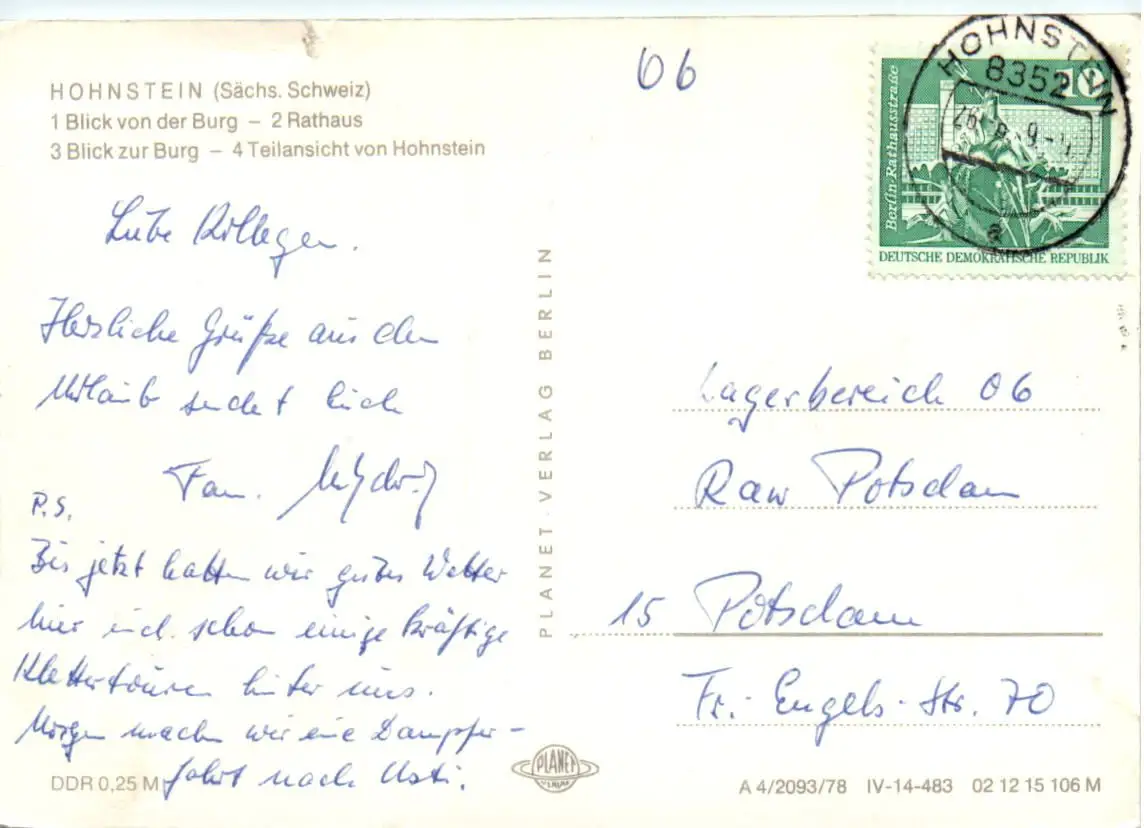 HOHNSTEIN (Sächs. Schweiz)
1 Blick von der Burg – 2 Rathaus
3 Blick zur Burg – 4 Teilansicht von Hohnstein
Liebe Kollegen.
Herzliche Grüße aus dem
Urlaub sendet Euch
Fam.
P.S.
Bis jetzt hatten wir gutes Wetter
hier und schon einige kräftige
Klettertouren hinter uns.
Morgen machen wir eine Dampfer-
fahrt nach Usti.
DDR 0,25 M
PLANET-VERLAG BERLIN
PLANET
06
HOHNSTEIN
8352
10
Berlin-Rathausstraße
DEUTSCHE DEMOKRATISCHE REPUBLIK
a
Lagerbereich 06
Raw Potsdam
15 Potsdam
Fr.-Engels-Str. 70
A 4/2093/78 IV-14-483 02 12 15 106 M